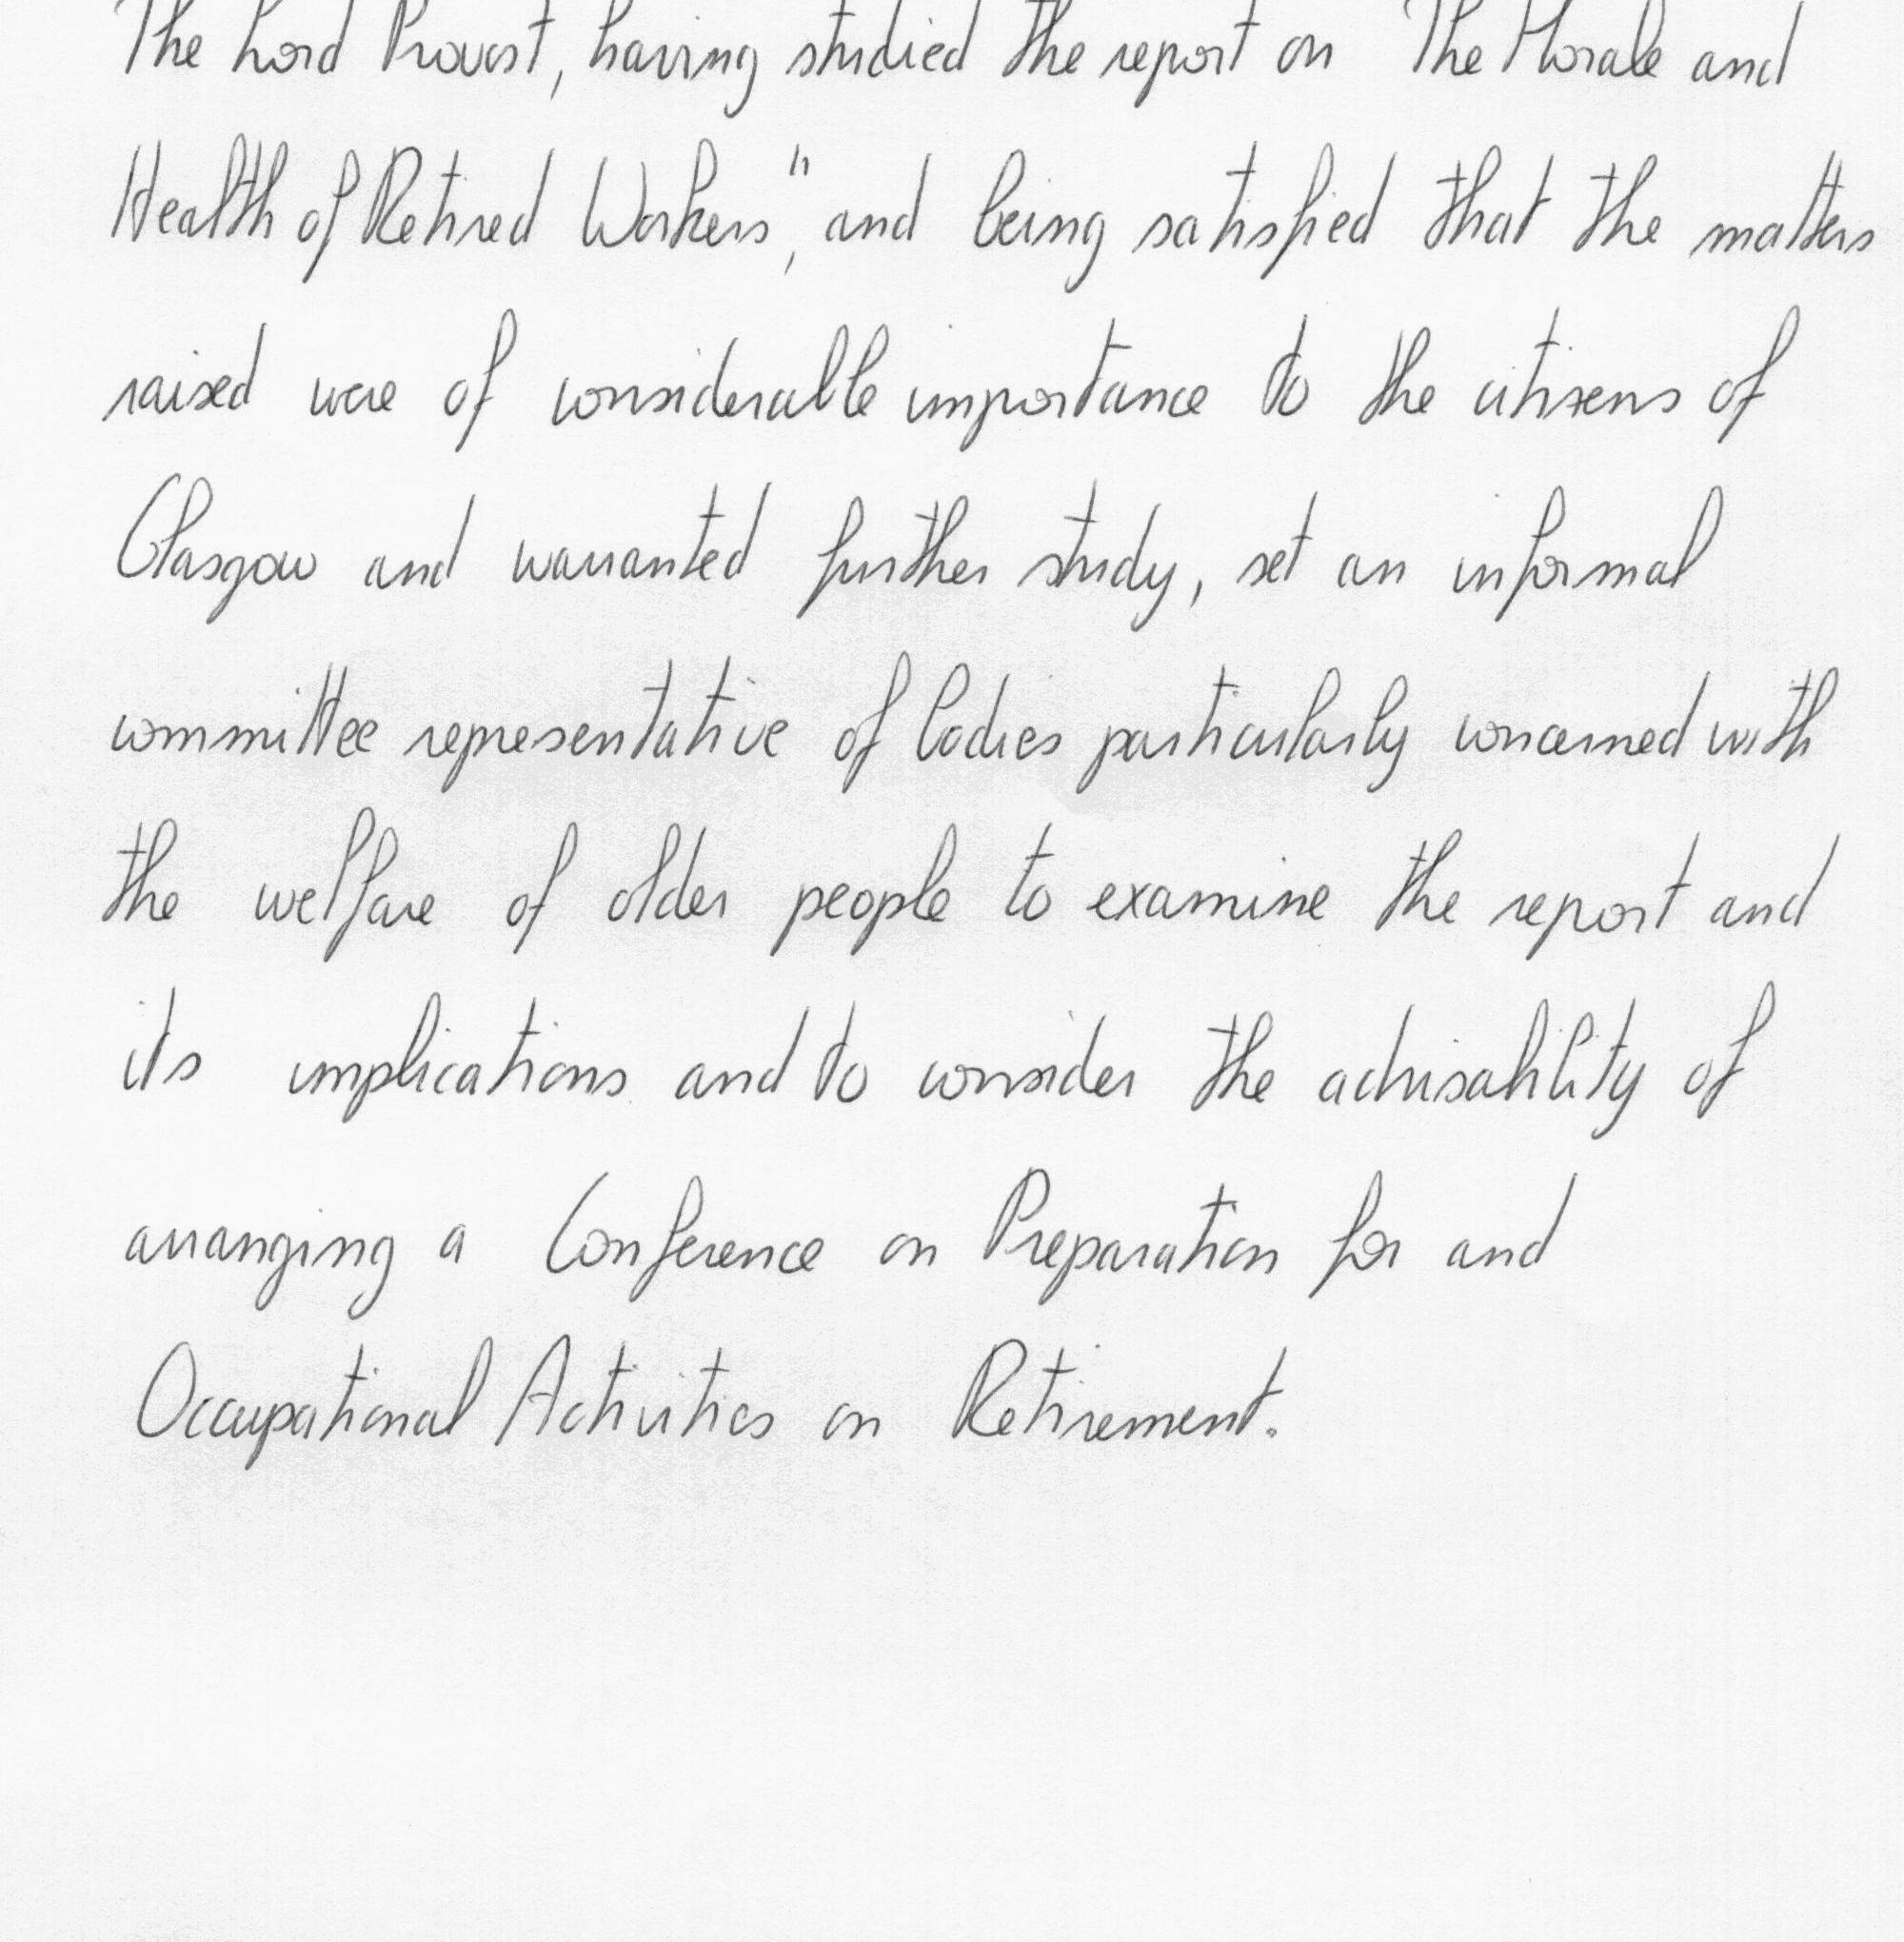 The Lord Provost, having studied the report on "The Morale and
Health of Retired Workers", and being satisfied that the matters
raised were of considerable importance to the citizens of
Glasgow and warranted further study, set an informal
committee representative of bodies particularly concerned with
the welfare of older people to examine the report and
its implications and to consider the advisability of
arranging a Conference on Preparation for and
Occupational Activities on Retirement.